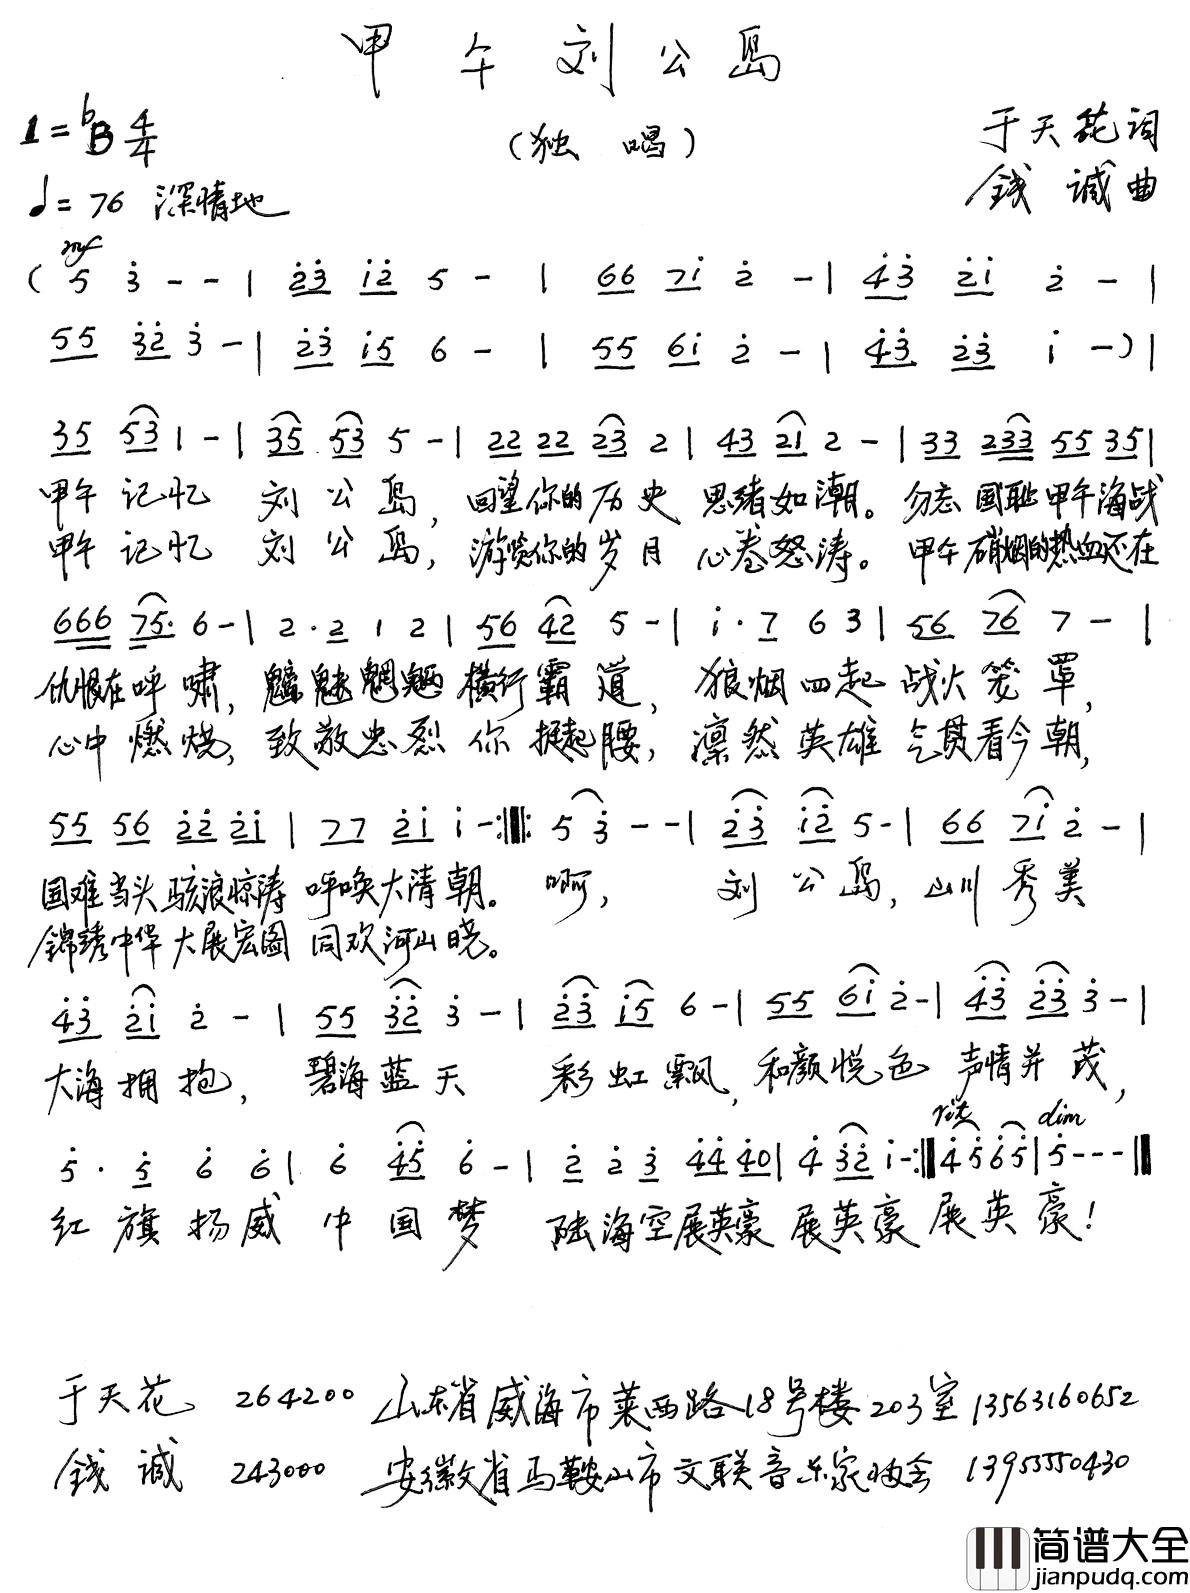 甲午刘公岛
1=♭B 4/4
(独 唱)
于天花词
♩=76 深情地
钱 诚曲
mf
( 5 3̇ - - | 2̇3̇ 1̇2̇ 5 - | 66 71̇ 2̇ - | 4̇3̇ 2̇1̇ 2̇ - |
55 3̇2̇ 3̇ - | 2̇3̇ 1̇5 6 - | 55 61̇ 2̇ - | 4̇3̇ 2̇3̇ 1̇ - ) |
35 53 1 - | 35 53 5 - | 22 22 23 2 | 43 21 2 - | 33 233 55 35 |
甲午 记忆 刘 公 岛, 回望你的历史 思绪如潮。 勿忘 国耻 甲午海战
甲午 记忆 刘 公 岛, 游览你的岁月 心卷怒涛。 甲午 硝烟的热血还在
666 75· 6 - | 2 · 2 1 2 | 56 42 5 - | 1̇ · 7 6 3 | 56 76 7 - |
仇恨在呼 啸, 魑魅魍魉 横行霸 道, 狼烟四起 战火 笼 罩,
心中 燃 烧, 致敬忠烈 你 挺起腰, 凛然英雄 气贯看今朝,
55 56 2̇2̇ 2̇1̇ | 77 2̇1̇ 1̇ - :||: 5 3̇ - - | 2̇3̇ 1̇2̇ 5 - | 66 71̇ 2̇ - |
国难当头 骇浪惊涛 呼唤大清朝。 啊, 刘 公 岛, 山川 秀 美
锦绣中华 大展宏图 同欢河山晓。
4̇3̇ 2̇1̇ 2̇ - | 55 3̇2̇ 3̇ - | 2̇3̇ 1̇5 6 - | 55 61̇ 2̇ - | 4̇3̇ 2̇3̇ 3̇ - |
大海 拥 抱, 碧海 蓝 天 彩 虹 飘, 和颜悦色 声情并 茂,
rit dim
5̇ · 5̇ 6̇ 6̇ | 6̇ 4̇5̇ 6̇ - | 2̇ 2̇ 3̇ 4̇4̇ 4̇0 | 4̇ 3̇2̇ 1̇ - :|| 4̇ 5̇ 6̇ 5̇ | 5̇ - - - ||
红 旗 扬 威 中 国 梦 陆海空展英豪 展英豪 展英豪!
于天花 264200 山东省威海市莱西路18号楼203室 13563160652
钱 诚 243000 安徽省马鞍山市文联音乐家协会 13955550430
简谱大全
jianpudq.com